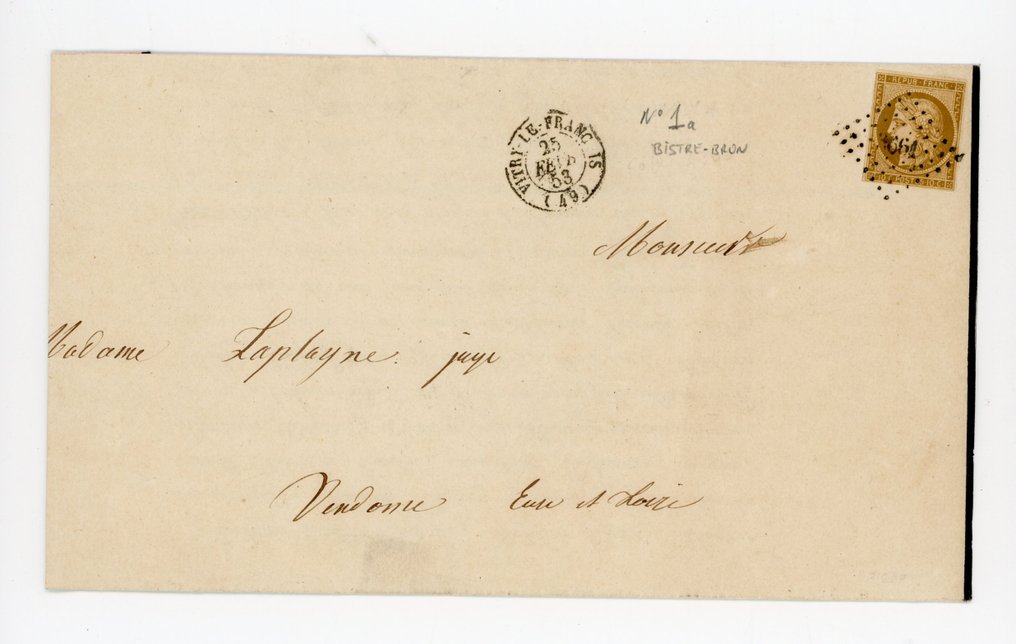 REPUB. FRANC.
POSTES 10 C.
VITRY-LE-FRANÇOIS
25
FEVR
53
(49)
N° 1a
BISTRE-BRUN
Monsieur
Madame Laplagne juge
Vendome Eure et Loire